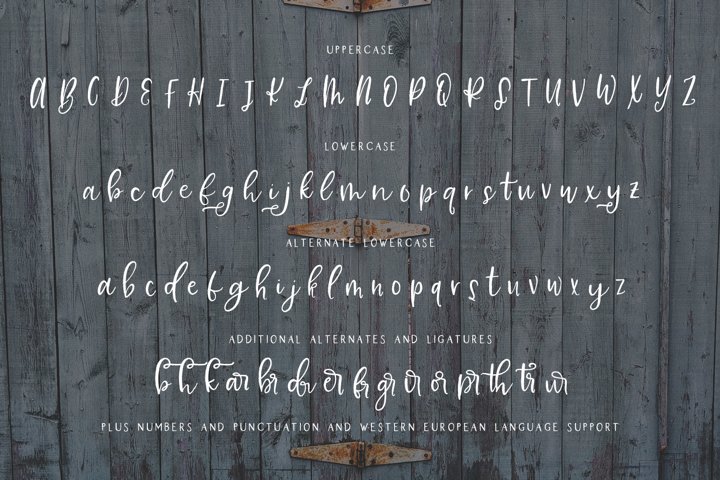 UPPERCASE
A B C D E F H I J K L M N O P Q R S T U V W X Y Z
LOWERCASE
a b c d e f g h i j k l m n o p q r s t u v w x y z
ALTERNATE LOWERCASE
a b c d e f g h i j k l m n o p q r s t u v w x y z
ADDITIONAL ALTERNATES AND LIGATURES
b h k ar br dr er fr gr ir or pr th tr ur
PLUS NUMBERS AND PUNCTUATION AND WESTERN EUROPEAN LANGUAGE SUPPORT